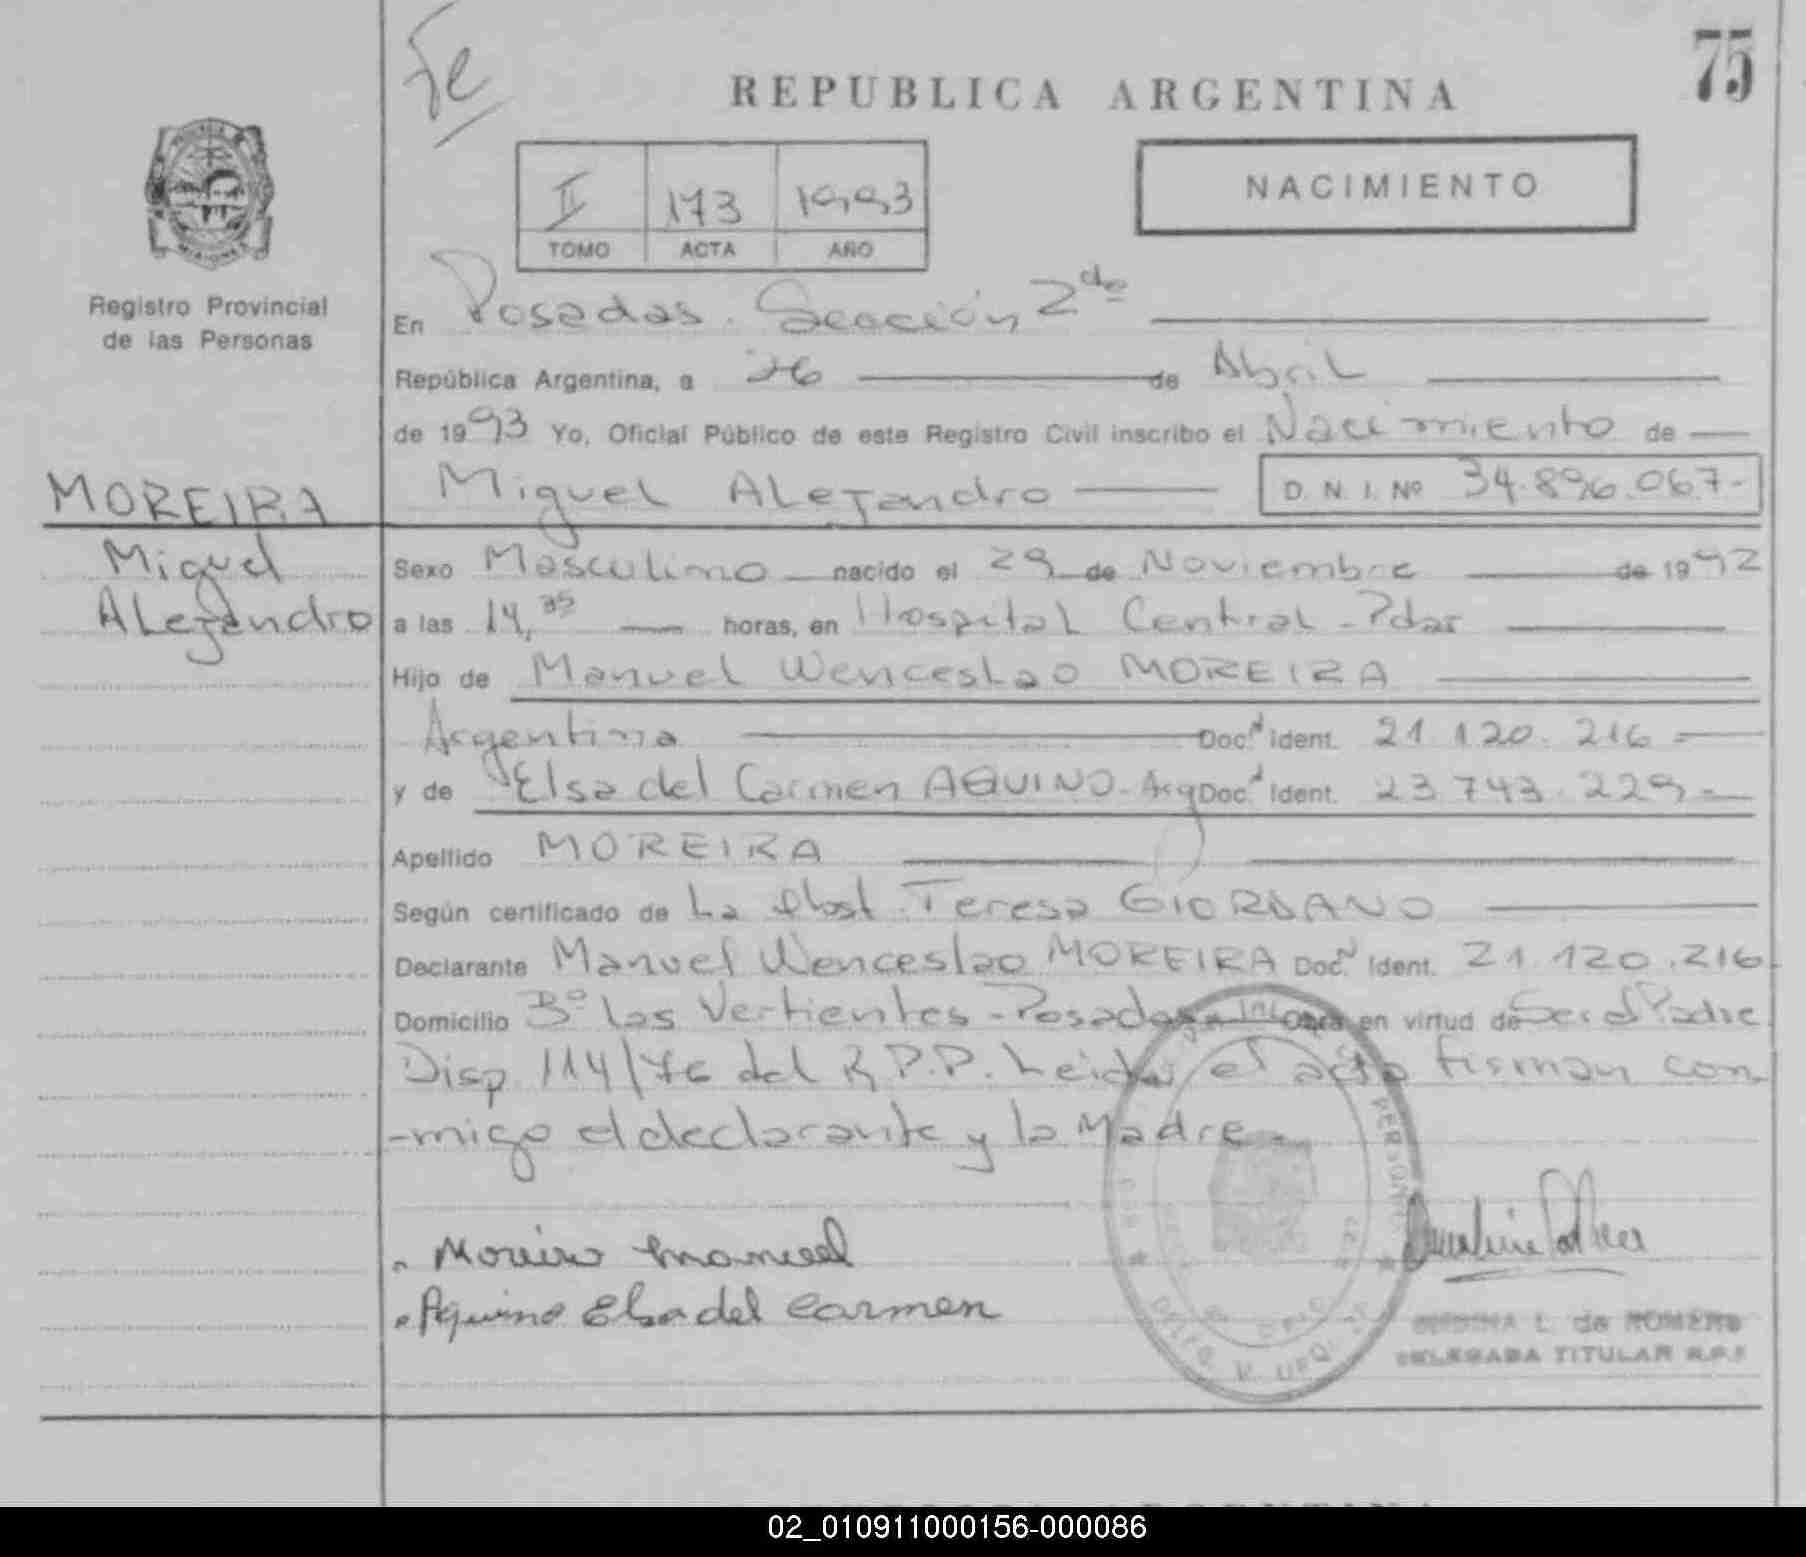 Fe
75
REPUBLICA ARGENTINA
NACIMIENTO
II 173 1993
TOMO ACTA AÑO
MISIONES
Registro Provincial
de las Personas
En Posadas. Sección 2da
República Argentina, a 26 de Abril
de 1993 Yo, Oficial Público de este Registro Civil inscribo el Nacimiento de
MOREIRA
Miguel Alejandro
D. N. I. Nº 34.896.067-
Miguel
Alejandro
Sexo Masculino nacido el 29 de Noviembre de 1992
a las 14,35 horas, en Hospital Central - Pdas
Hijo de Manuel Wenceslao MOREIRA
Argentina Doc. Ident. 21.120.216-
y de Elsa del Carmen AQUINO - Arg Doc. Ident. 23.743.229-
Apellido MOREIRA
Según certificado de La Obst. Teresa GIORDANO
Declarante Manuel Wenceslao MOREIRA Doc. Ident. 21.120.216
Domicilio Bº las Vertientes - Posadas Obra en virtud de Ser el Padre
Disp. 114/76 del R.P.P. Leida el acta firman con-
-migo el declarante y la Madre-
Moreira Manuel
Aquino Elsa del Carmen
L. de ROMERO
DELEGADA TITULAR R.P.P.
02_010911000156-000086